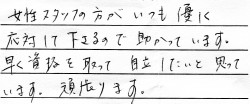 女性スタッフの方がいつも優しく
応対して下さるので助かっています。
早く資格を取って自立したいと思って
います。頑張ります。